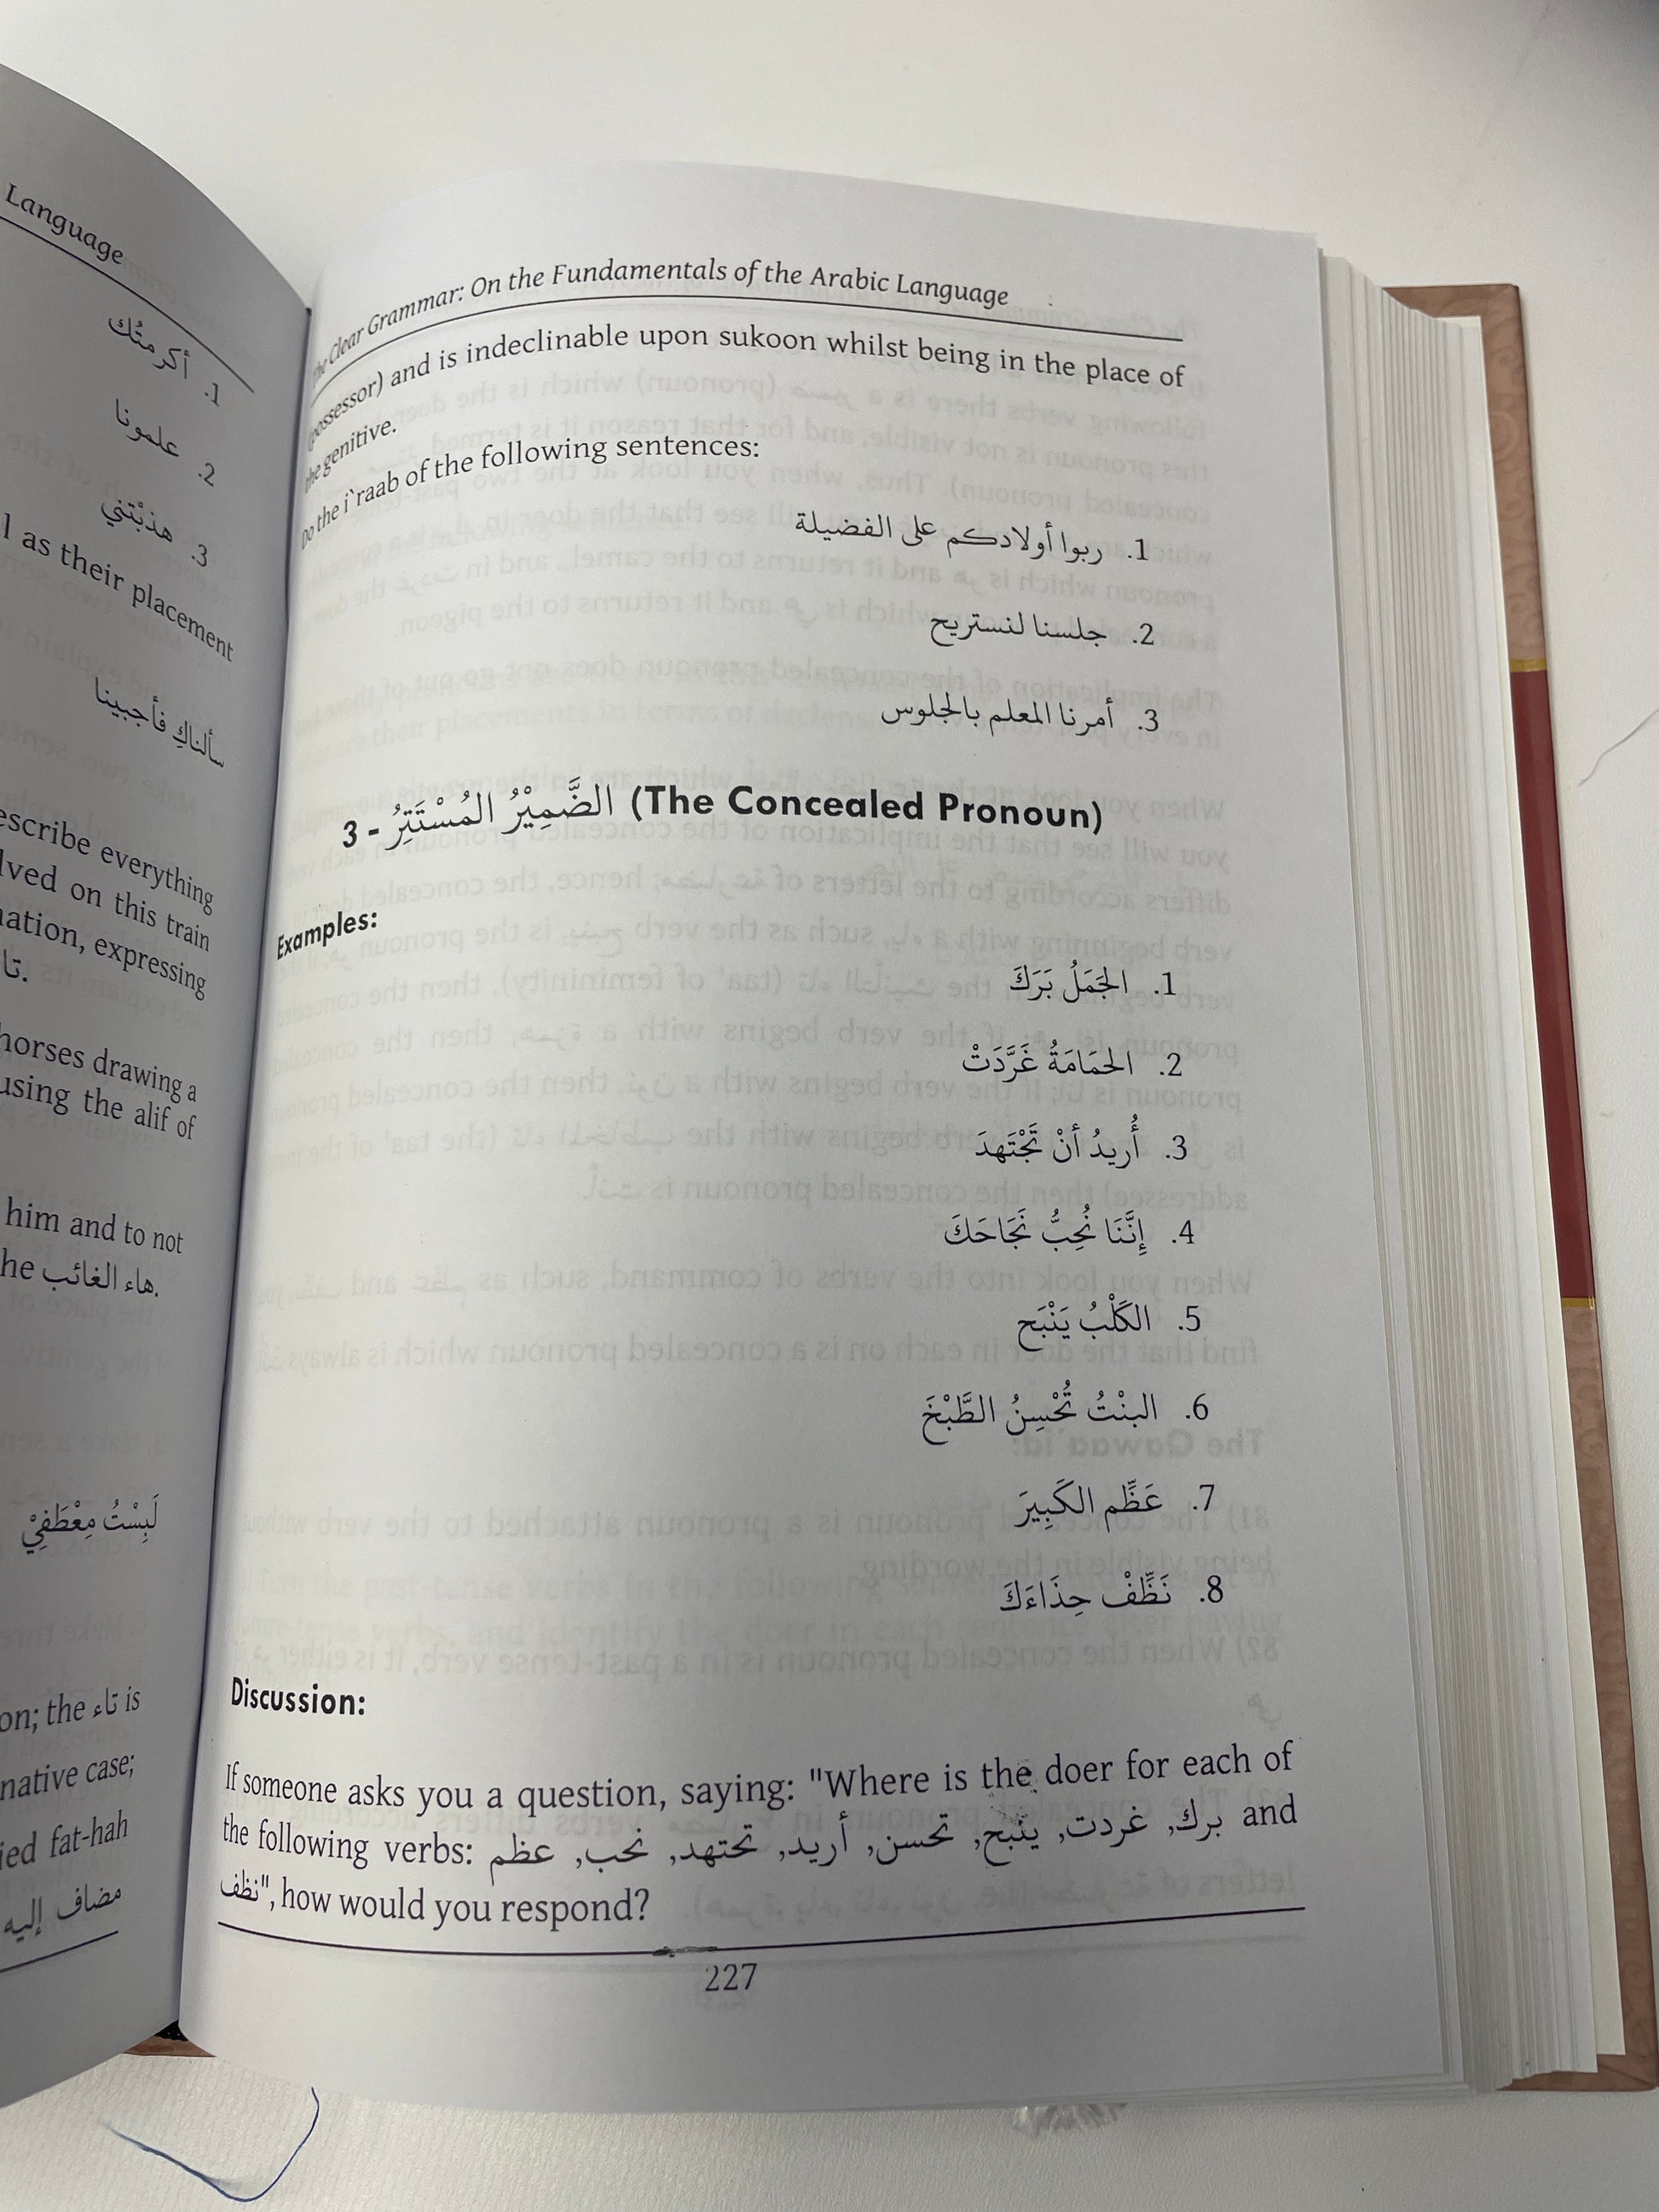 Language
1. أكرمتُك
2. علمونا
3. هذبْتني
as their placement
سألناكِ فأجبينا
escribe everything
lved on this train
nation, expressing
تا.
horses drawing a
using the alif of
him and to not
he هاء الغائب.
لَبِسْتُ مِعْطَفِيْ
on; the تاء is
native case;
ied fat-hah
مضاف إليه
The Clear Grammar: On the Fundamentals of the Arabic Language
(possessor) and is indeclinable upon sukoon whilst being in the place of
the genitive.
Do the i`raab of the following sentences:
1. ربوا أولادكم على الفضيلة
2. جلسنا لنستريح
3. أمرنا المعلم بالجلوس
3 - الضَّمِيْرُ المُسْتَتِرُ (The Concealed Pronoun)
Examples:
1. الجَمَلُ بَرَكَ
2. الحَمَامَةُ غَرَّدَتْ
3. أُرِيدُ أنْ تَجْتَهدَ
4. إِنَّنَا نُحِبُّ نَجَاحَكَ
5. الكَلْبُ يَنْبَح
6. البنْتُ تُحْسِنُ الطَّبْخَ
7. عَظِّم الكَبِيرَ
8. نَظِّفْ حِذَاءَكَ
Discussion:
If someone asks you a question, saying: "Where is the doer for each of
the following verbs: برك, غردت, ينبح, تحسن, أريد, تجتهد, نحب, عظم and
نظف", how would you respond?
227